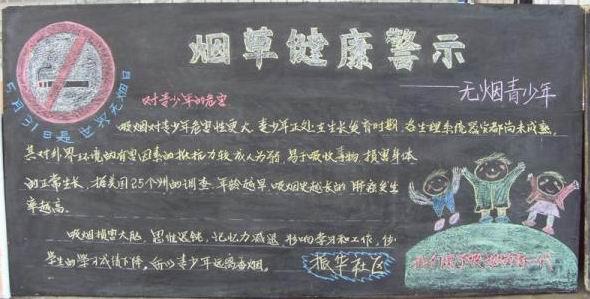 烟草健康警示
——无烟青少年
5月31日是世界无烟日
对青少年的危害
吸烟对青少年危害性更大，青少年正处在生长发育时期，各生理系统器官都尚未成熟，
其对外界环境的有害因素的抵抗力较成人为弱，易于吸收毒物，损害身体
的正常生长，据美国25个州的调查，年龄越早，吸烟史越长的肺癌发生
率越高。
吸烟损害大脑，思维迟钝，记忆力减退，影响学习和工作，使
学生的学习成绩下降，所以青少年远离香烟。
振华社区
我们是 一代